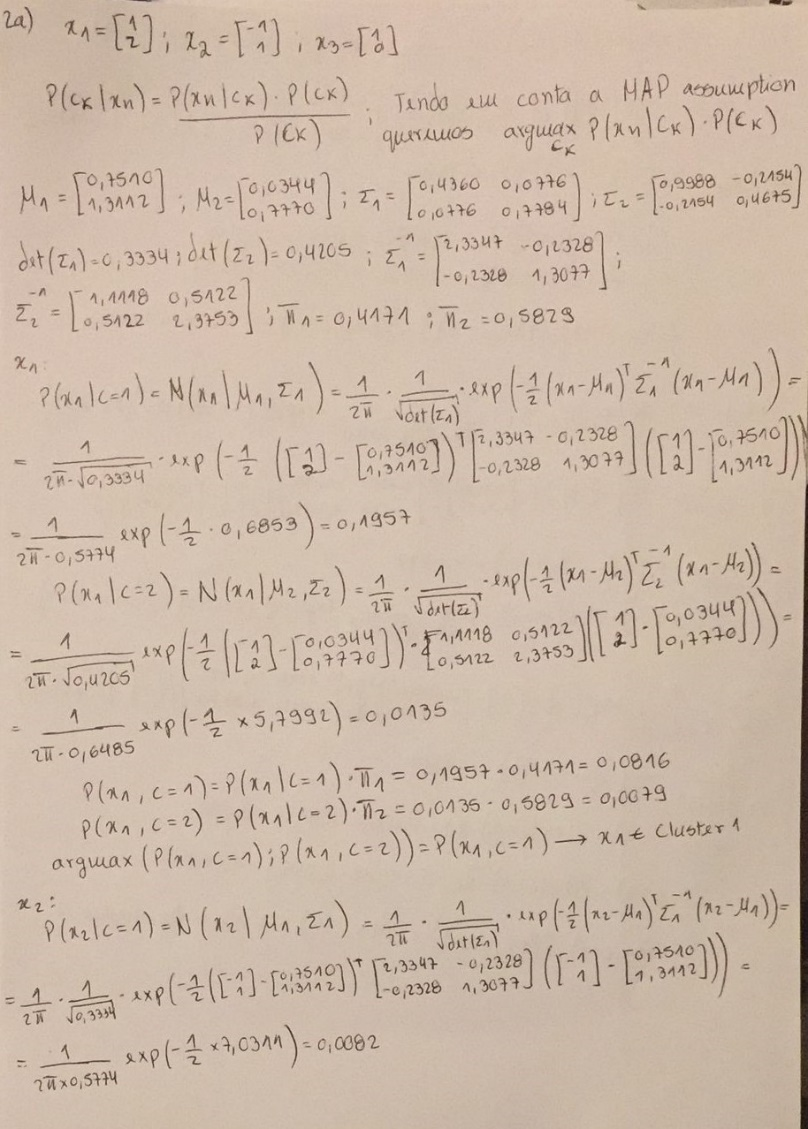 2a) x₁=[1 2]; x₂=[-1 1]; x₃=[1 0]
P(cₖ|xₙ)=P(xₙ|cₖ)·P(cₖ) / P(Cₖ); Tendo em conta a MAP assumption
queremos argmax_cₖ P(xₙ|Cₖ)·P(Cₖ)
μ₁=[0,7510 1,3112]; μ₂=[0,0344 0,7770]; Σ₁=[0,4360 0,0776 0,0776 0,7784]; Σ₂=[0,9988 -0,2154 -0,2154 0,4675]
det(Σ₁)=0,3334; det(Σ₂)=0,4205; Σ₁⁻¹=[2,3347 -0,2328 -0,2328 1,3077];
Σ₂⁻¹=[1,1118 0,5122 0,5122 2,3753]; π₁=0,4171; π₂=0,5829
x₁:
P(x₁|c=1)=N(x₁|μ₁,Σ₁)=1/2π · 1/√det(Σ₁) · exp(-1/2(x₁-μ₁)ᵀ Σ₁⁻¹ (x₁-μ₁))=
= 1/(2π·√0,3334) · exp(-1/2 ([1 2]-[0,7510 1,3112])ᵀ [2,3347 -0,2328 -0,2328 1,3077] ([1 2]-[0,7510 1,3112]))
= 1/(2π·0,5774) exp(-1/2 · 0,6853)=0,1957
P(x₁|c=2)=N(x₁|μ₂,Σ₂)=1/2π · 1/√det(Σ₂) · exp(-1/2(x₁-μ₂)ᵀ Σ₂⁻¹ (x₁-μ₂))=
= 1/(2π·√0,4205) exp(-1/2 ([1 2]-[0,0344 0,7770])ᵀ · [1,1118 0,5122 0,5122 2,3753]([1 2]-[0,0344 0,7770]))=
= 1/(2π·0,6485) exp(-1/2 × 5,7992)=0,0135
P(x₁,c=1)=P(x₁|c=1)·π₁=0,1957·0,4171=0,0816
P(x₁,c=2)=P(x₁|c=2)·π₂=0,0135·0,5829=0,0079
argmax(P(x₁,c=1);P(x₁,c=2))=P(x₁,c=1) → x₁ ∈ Cluster 1
x₂:
P(x₂|c=1)=N(x₂|μ₁,Σ₁)=1/2π · 1/√det(Σ₁) · exp(-1/2(x₂-μ₁)ᵀ Σ₁⁻¹ (x₂-μ₁))=
= 1/2π · 1/√0,3334 · exp(-1/2([-1 1]-[0,7510 1,3112])ᵀ [2,3347 -0,2328 -0,2328 1,3077] ([-1 1]-[0,7510 1,3112]))=
= 1/(2π×0,5774) exp(-1/2 ×7,0311)=0,0082